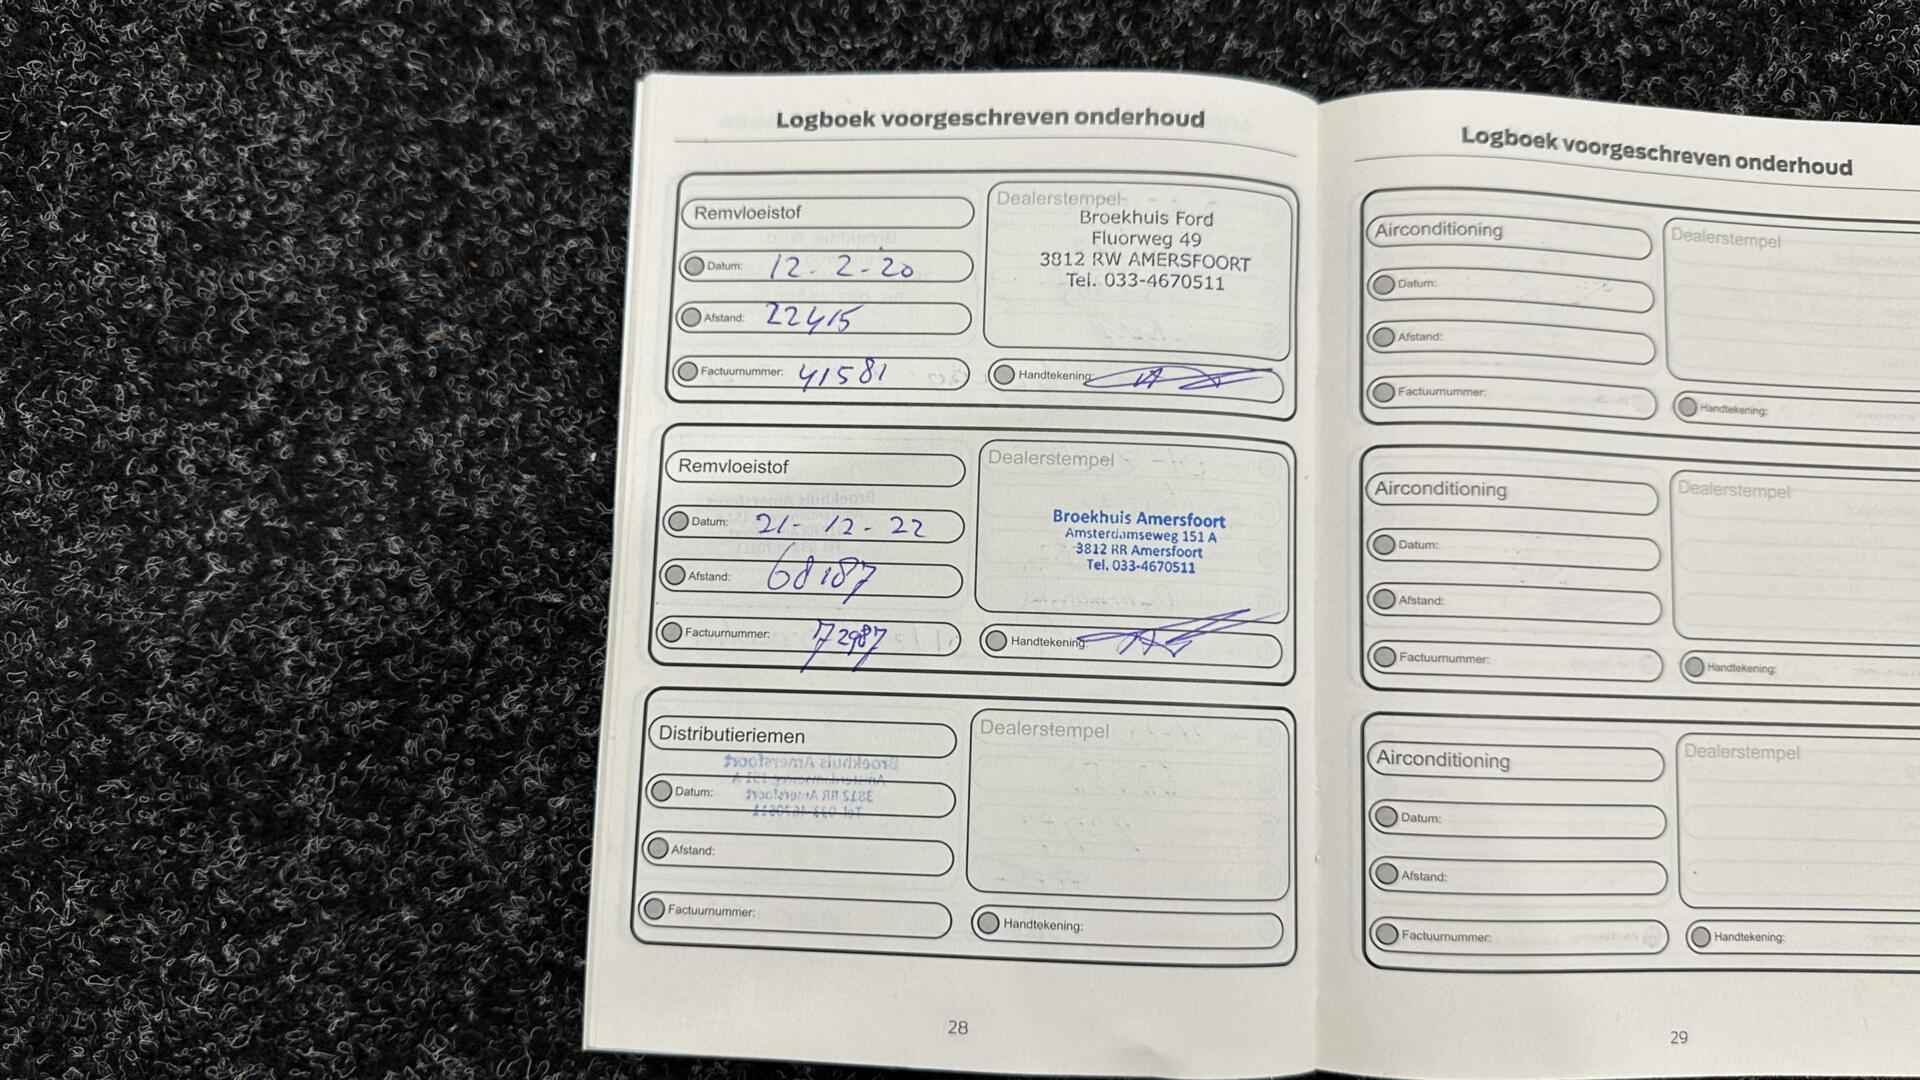 Logboek voorgeschreven onderhoud
Remvloeistof
Datum: 12-2-20
Afstand: 22415
Factuurnummer: 41581
Dealerstempel
Broekhuis Ford
Fluorweg 49
3812 RW AMERSFOORT
Tel. 033-4670511
Handtekening:
Remvloeistof
Datum: 21-12-22
Afstand: 68187
Factuurnummer: 72987
Dealerstempel
Broekhuis Amersfoort
Amsterdamseweg 151 A
3812 RR Amersfoort
Tel. 033-4670511
Handtekening:
Distributieriemen
Datum:
Afstand:
Factuurnummer:
Dealerstempel
Handtekening:
28
Logboek voorgeschreven onderhoud
Airconditioning
Datum:
Afstand:
Factuurnummer:
Dealerstempel
Handtekening:
Airconditioning
Datum:
Afstand:
Factuurnummer:
Dealerstempel
Handtekening:
Airconditioning
Datum:
Afstand:
Factuurnummer:
Dealerstempel
Handtekening:
29